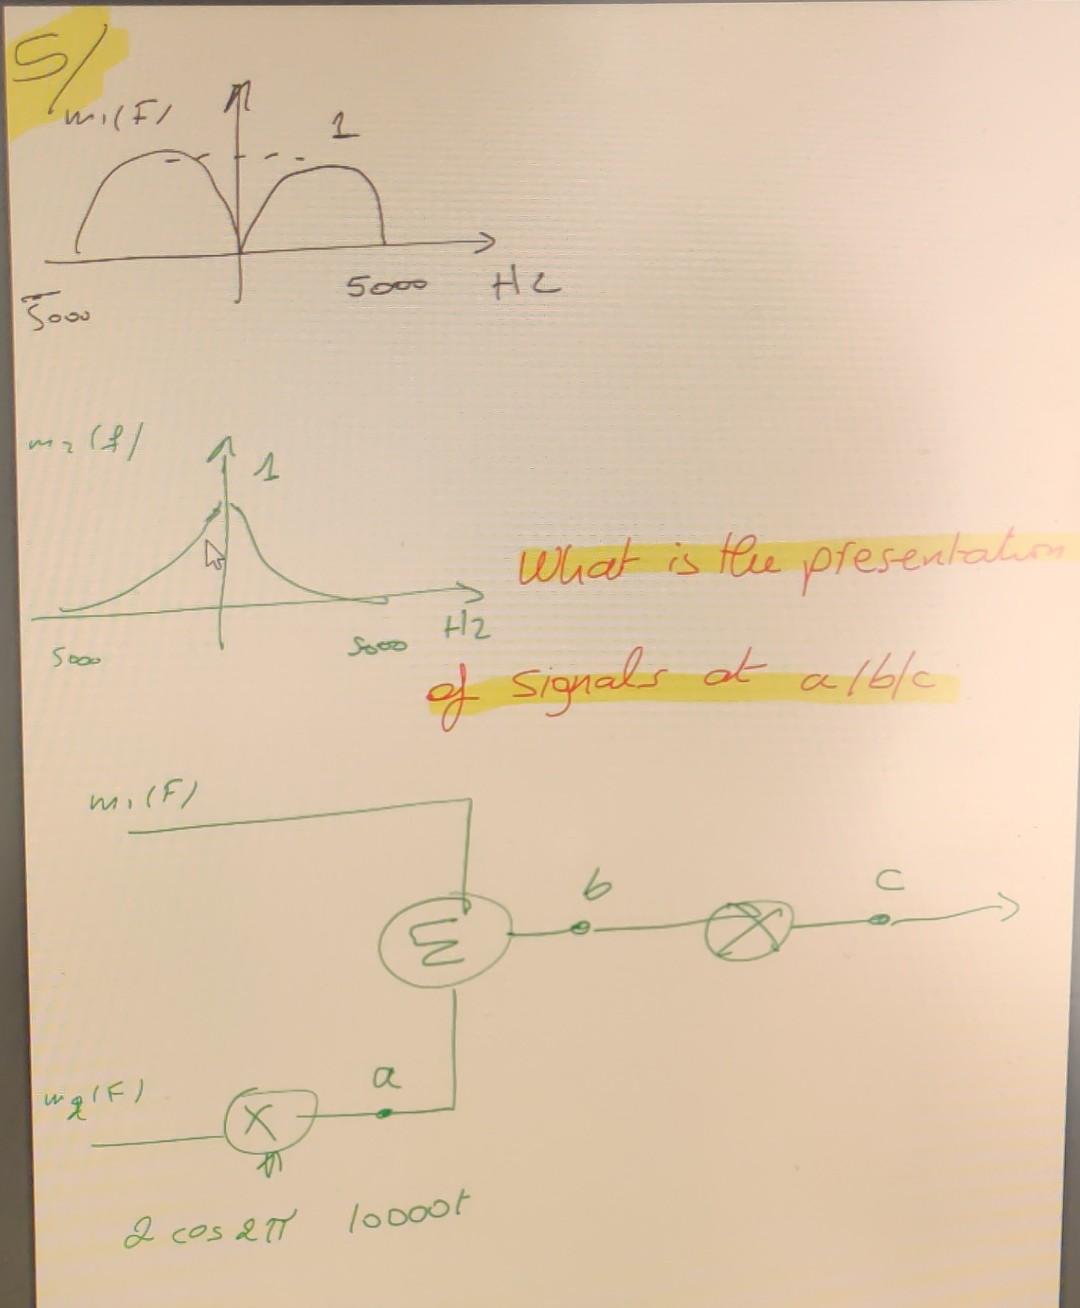 5/
m1(F)
1
5000
Hz
-5000
m2(f)
1
5000
5000
Hz
What is the presentation
of signals at a/b/c
m1(F)
Σ
b
c
m2(F)
X
a
2 cos 2π 10000t